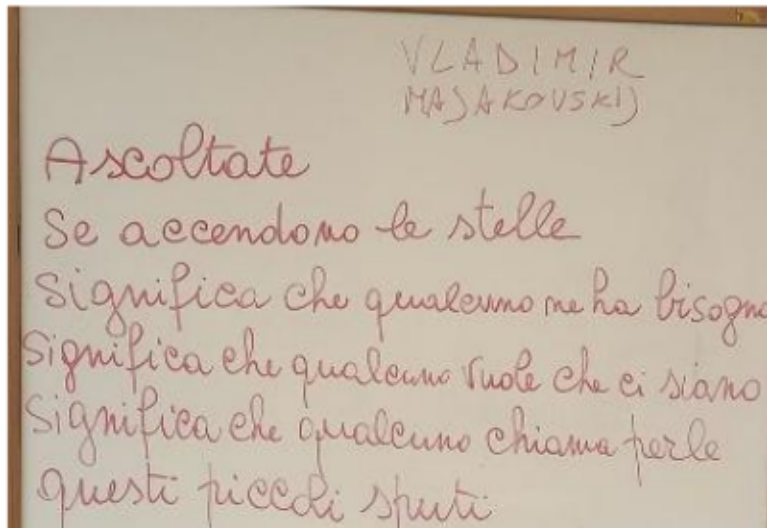 VLADIMIR
MAJAKOVSKIJ
Ascoltate
Se accendono le stelle
Significa che qualcuno ne ha bisogno
Significa che qualcuno vuole che ci siano
Significa che qualcuno chiama perle
questi piccoli sputi